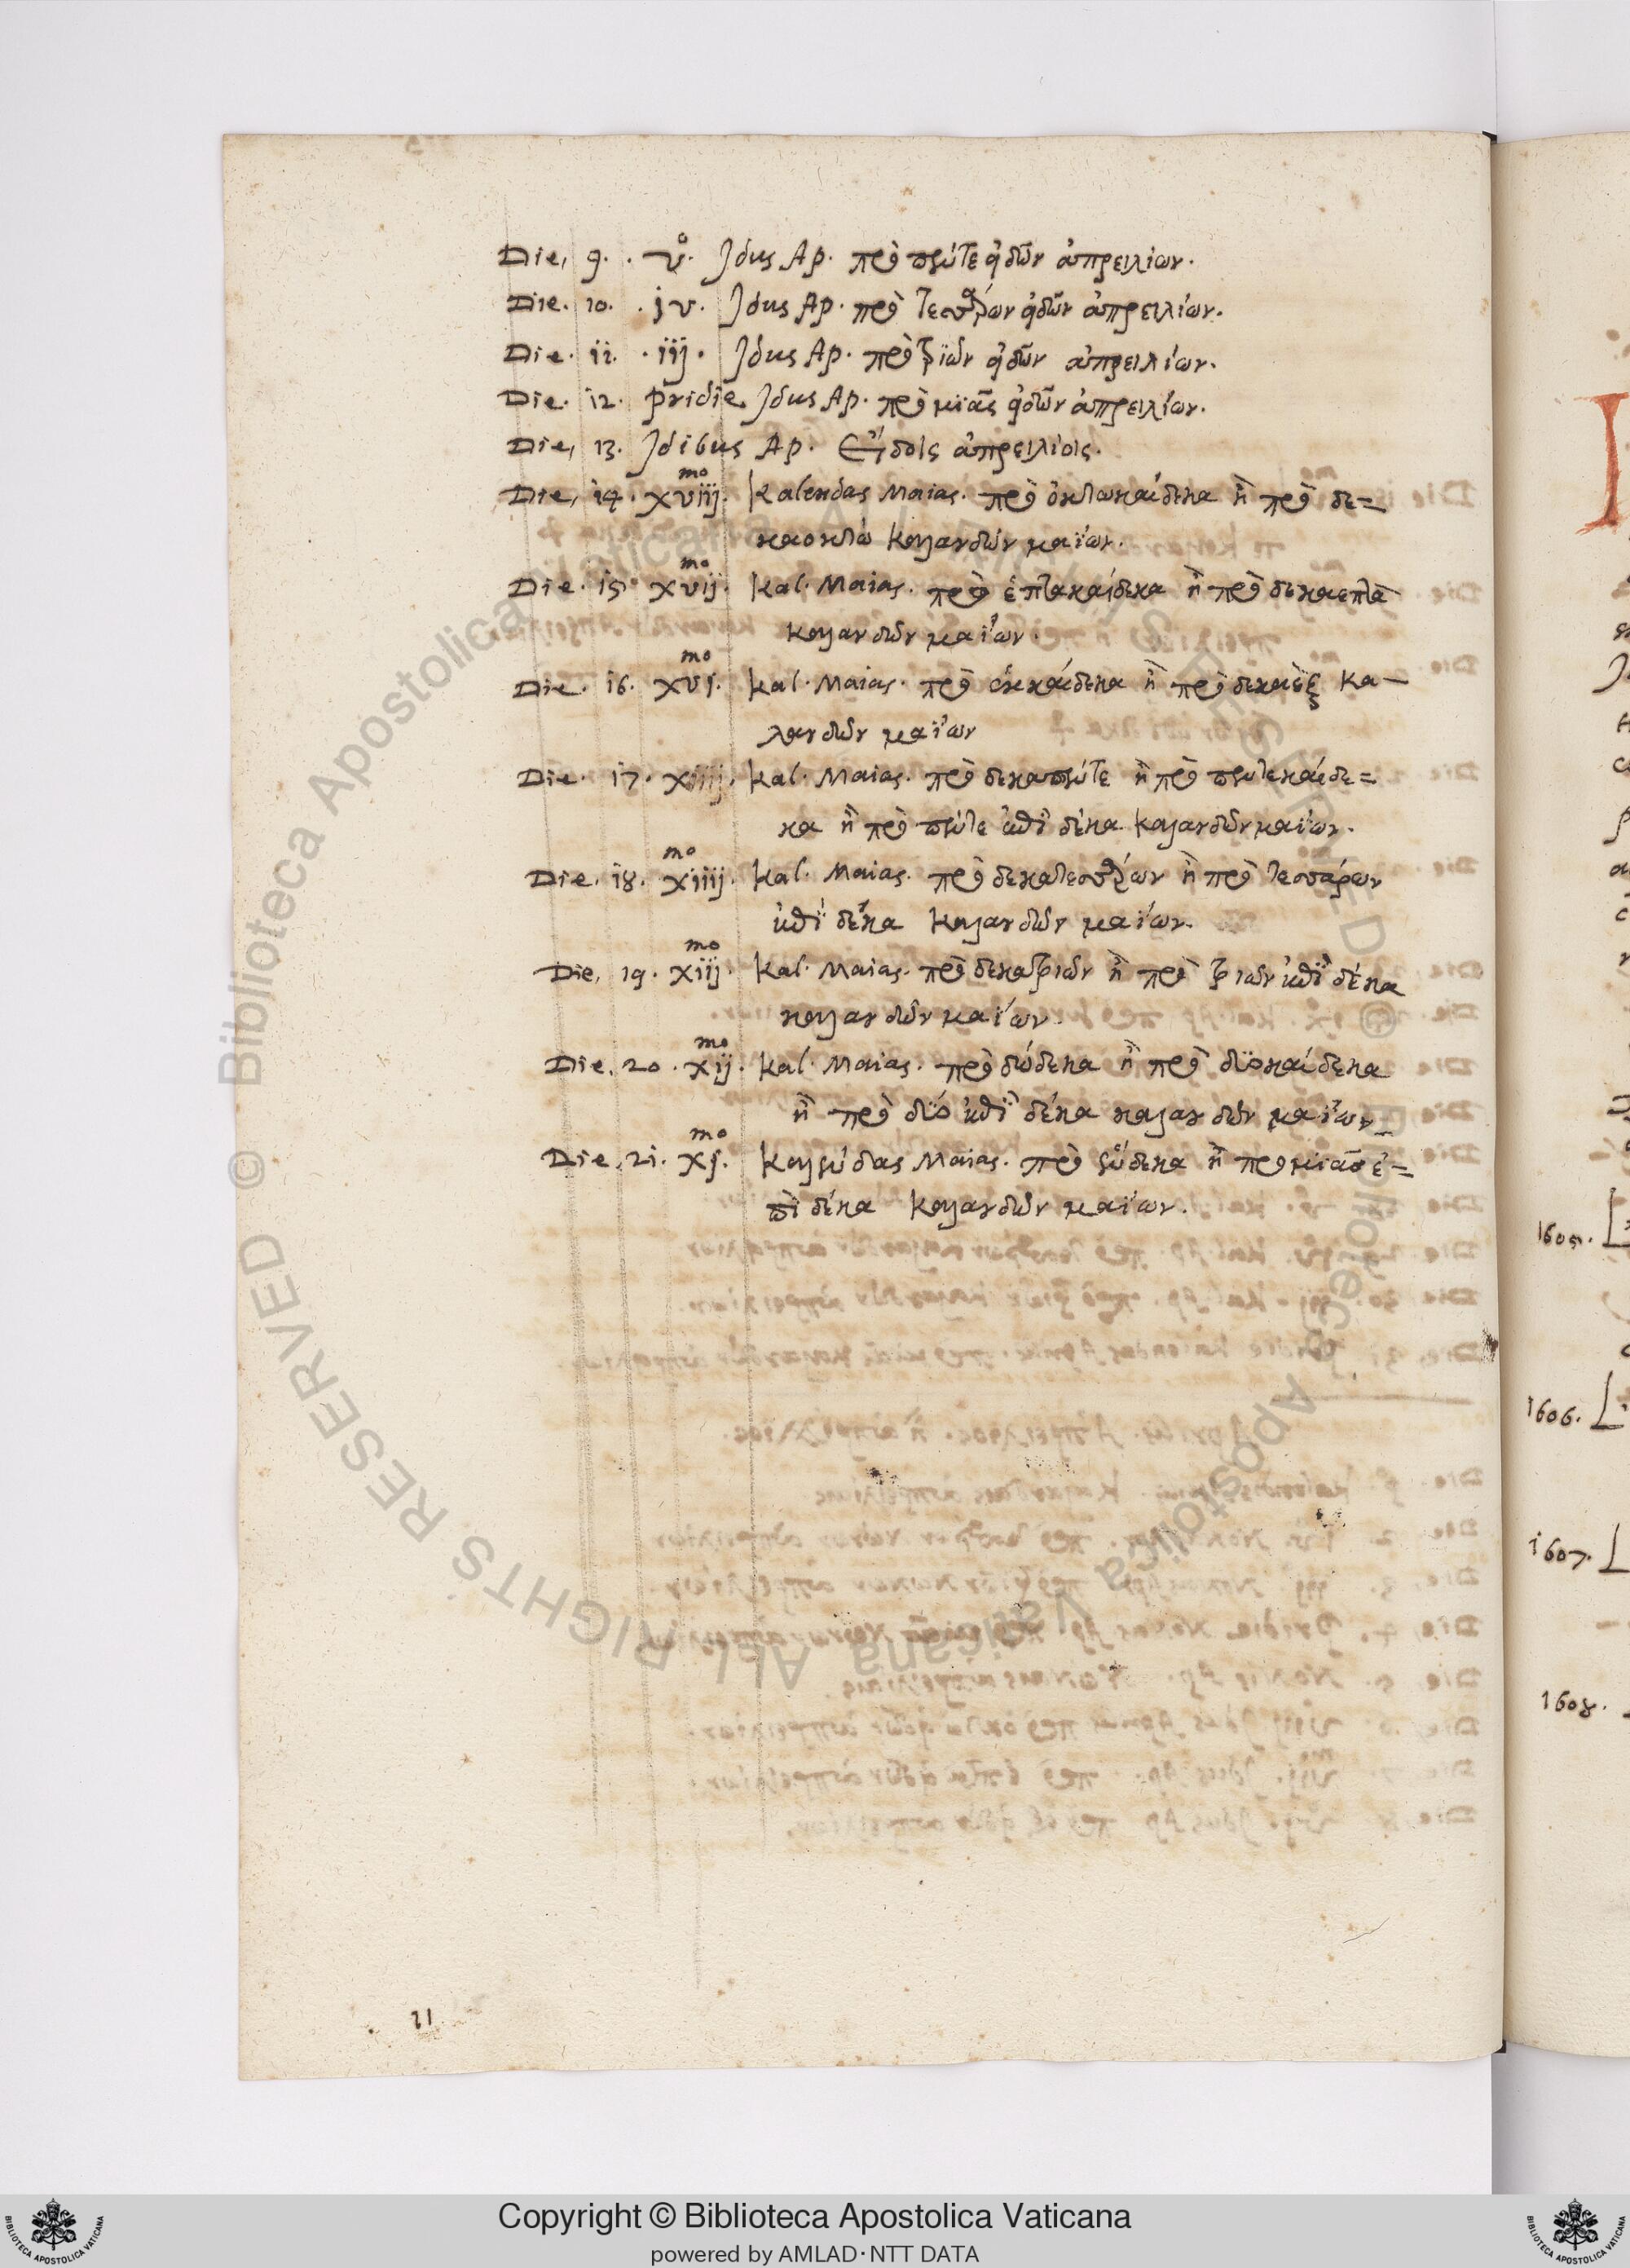 Die, 9. v°. Idus Ap. πρὸ πέντε εἰδῶν ἀπρειλίων.
Die. 10. . iv. Idus Ap. πρὸ τεσσάρων εἰδῶν ἀπρειλίων.
Die. ii. . iij. Idus Ap. πρὸ τριῶν εἰδῶν ἀπρειλίων.
Die. i2. pridie Idus Ap. πρὸ μιᾶς εἰδῶν ἀπρειλίων.
Die, 13. Idibus Ap. Εἰδοῖς ἀπρειλίοις.
Die, i4. xviij.mo Kalendas Maias. πρὸ ὀκτωκαίδεκα ἢ πρὸ δε=
καοκτὼ Καλανδῶν μαΐων.
Die. i5. xvij.mo Kal. Maias. πρὸ ἑπτακαίδεκα ἢ πρὸ δεκαεπτὰ
καλανδῶν μαΐων.
Die. i6. xvj.mo Kal. Maias. πρὸ ἑκκαίδεκα ἢ πρὸ δεκαὲξ Κα-
λανδῶν μαΐων
Die. i7. xiiij. Kal. Maias. πρὸ δεκαπέντε ἢ πρὸ πεντεκαίδε=
κα ἢ πρὸ πέντε ἐπὶ δέκα Καλανδῶν μαΐων.
Die. i8. xiiij.mo Kal. Maias. πρὸ δεκατεσσάρων ἢ πρὸ τεσσάρων
ἐπὶ δέκα Καλανδῶν μαΐων.
Die, i9. xiij.mo Kal. Maias. πρὸ δεκατριῶν ἢ πρὸ τριῶν ἐπὶ δέκα
καλανδῶν μαΐων.
Die, 20. xij.mo Kal. Maias. πρὸ δώδεκα ἢ πρὸ δϊοκαίδεκα
ἢ πρὸ δϊό ἐπὶ δέκα καλανδῶν μαΐων
Die, 2i. xj.mo Kalendas Maias. πρὸ ἕνδεκα ἢ πρὸ μιᾶς ἐ=
πὶ δέκα Καλανδῶν μαΐων.
21
1605.
1606.
1607.
1608.
© Biblioteca Apostolica Vaticana ALL RIGHTS RESERVED
Copyright © Biblioteca Apostolica Vaticana
powered by AMLAD·NTT DATA